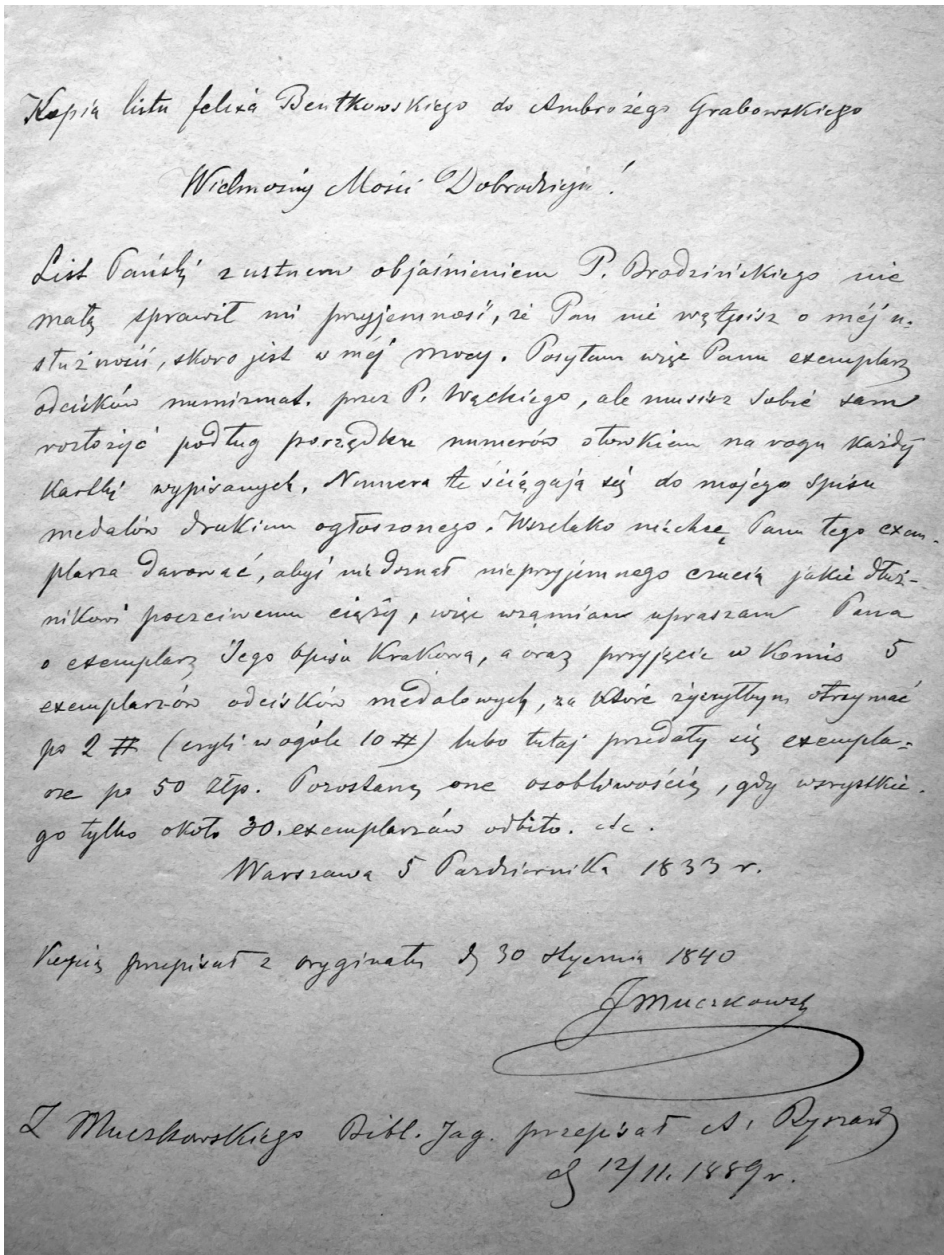 Kopia listu felixa Bentkowskiego do Ambrożego Grabowskiego
Wielmożny Mości Dobrodzieju!
List Pański z ustnem objaśnieniem P. Brodzińskiego nie
małą sprawił mi przyjemność, że Pan nie wątpisz o méj u-
służności, skoro jest w méj mocy. Posyłam więc Panu exemplarz
odcisków numizmat. przez P. Wąckiego, ale musisz sobie sam
rozłożyć podług porządku numerów ołówkiem na rogu każdéj
kartki wypisanych. Numera te ściągają się do mojego spisu
medalów drukiem ogłoszonego. Wszelako niechcę Panu tego exem-
plarza darować, abyś niedoznał nieprzyjemnego czucia jakie dłuż-
nikowi poczciwemu ciąży, więc wzamian upraszam Pana
o exemplarz Jego opisu Krakowa, a oraz przyjęcie w Komis 5
exemplarzów odcisków medalowych, za które życzyłbym otrzymać
po 2 # (czyli w ogóle 10 #) lubo tutaj przedały się exempla=
rze po 50 złp. Pozostaną one osobliwością, gdy wszystkie.
go tylko około 30. exemplarzów odbito. etc.
Warszawa 5 Października 1833 r.
Kopią przepisał z oryginału d 30 stycznia 1840
J Muczkowski
Z Muczkowskiego Bibl. Jag. przepisał A. Ryszard
d 12/11. 1889 r.